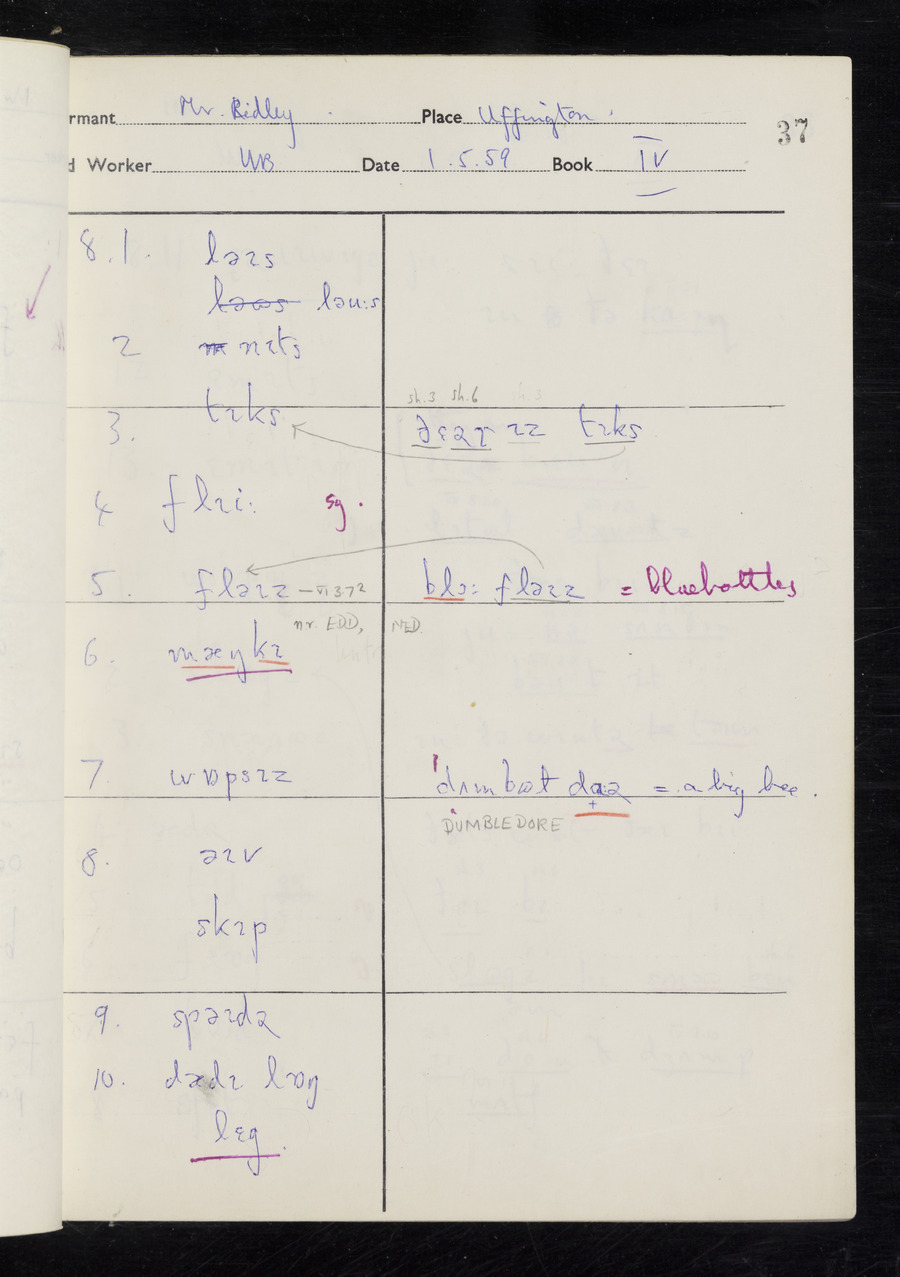 rmant Mr. Ridley Place Uffington.
37
d Worker WB Date 1.5.59 Book IV
8.1. ləɪs
ləʊs ləu:s
2 nɪts
sh.3 sh.6 sh.3
3. tɪks ðɛəɾ ɪz tɪks
4 flɪi: sg.
5. fləɪz – VI 3 7 2 blə: fləɪz = bluebottles
nr. EDD, NED.
6. mæŋkɪ
7. wɒpsɪz dʌmbət dɑəz = a big bee.
DUMBLEDORE
8. əɪv
skɪp
9. spəɪdə
10. dædɪ lɒŋ
lɛg